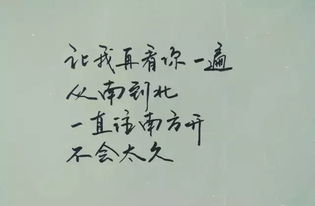 让我再看你一遍
从南到北
一直往南方开
不会太久